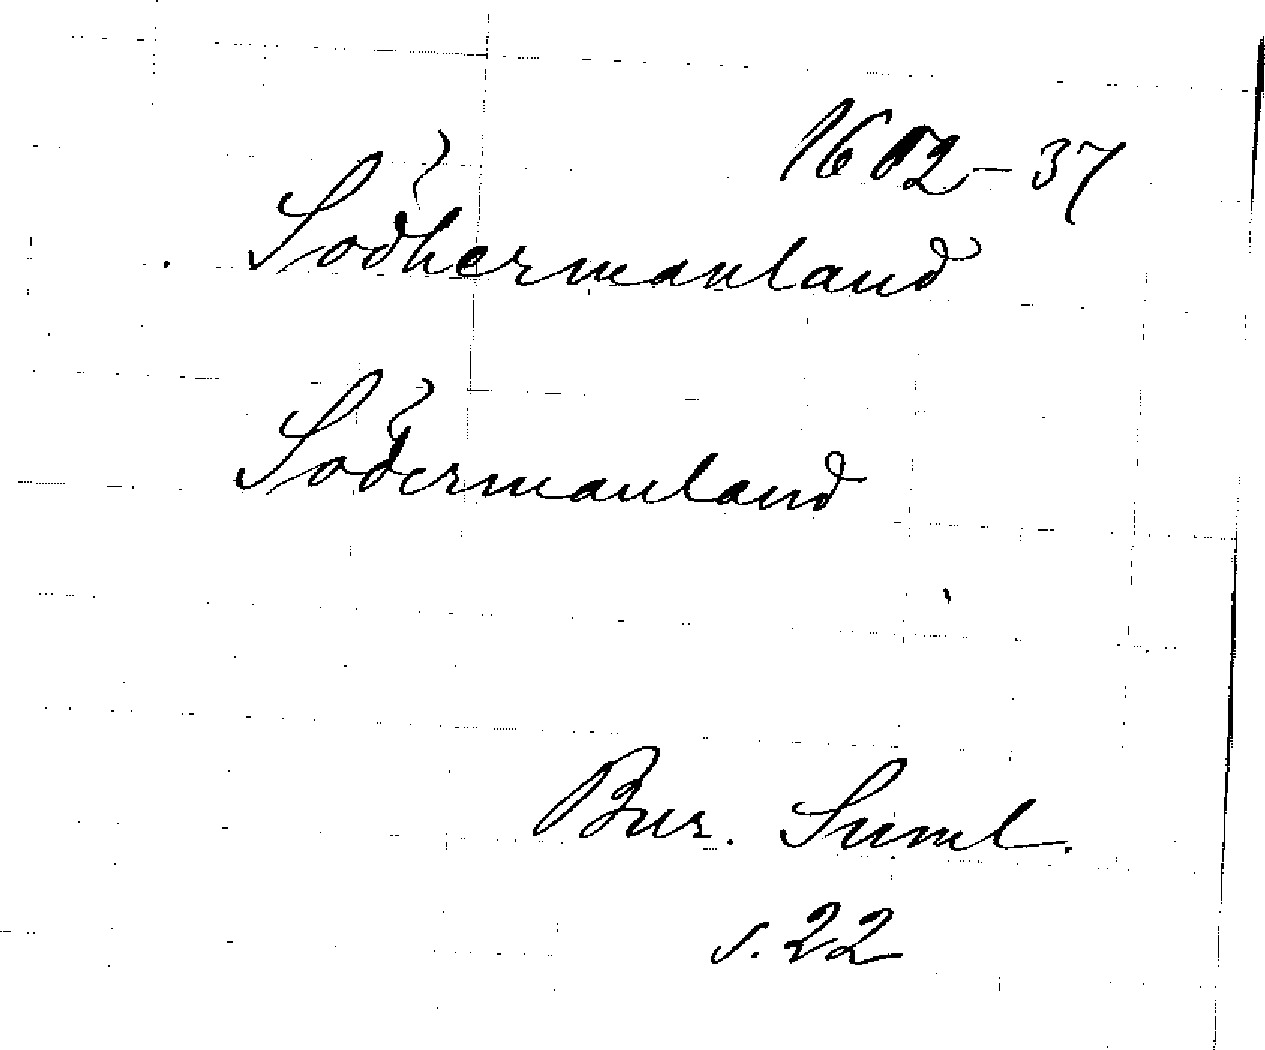 1602-37
Södhermanland
Södermanland
Bur. Suml.
s. 22